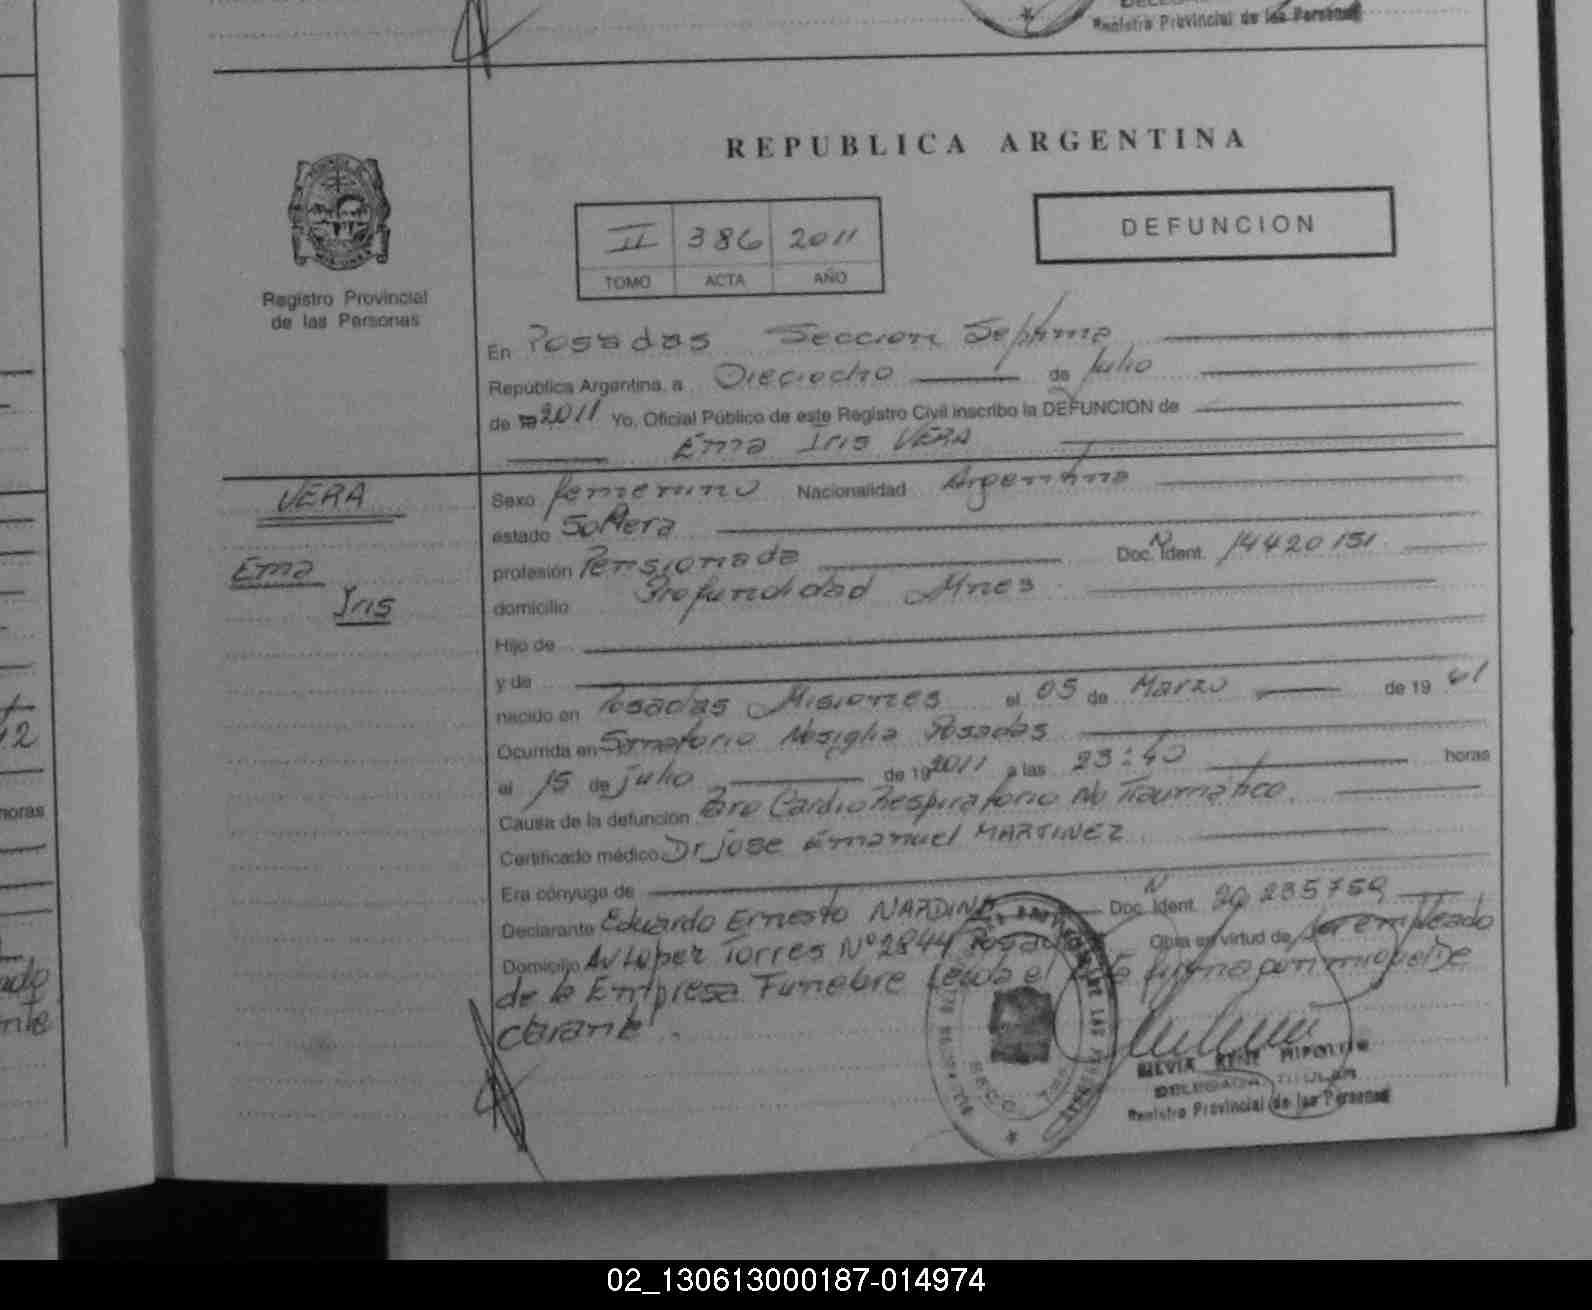 Registro Provincial de las Personas
REPUBLICA ARGENTINA
II 386 2011
TOMO ACTA AÑO
DEFUNCION
Registro Provincial
de las Personas
En Posadas Seccion Septima
República Argentina, a Dieciocho de Julio
de 2011 Yo, Oficial Público de este Registro Civil inscribo la DEFUNCION de
Ema Iris VERA
VERA
Ema
Iris
Sexo femenino Nacionalidad Argentina
estado Soltera
profesión Pensionada Doc. N Ident. 14420151
domicilio Profundidad Mnes
Hijo de
y de
nacido en Posadas Misiones el 05 de Marzo de 19 61
Ocurrida en Sanatorio Nosiglia Posadas
el 15 de julio de 19 2011 a las 23:40 horas
Causa de la defunción Paro CardioRespiratorio No Traumatico
Certificado médico Dr Jose Emanuel MARTINEZ
Era cónyuge de
Declarante Eduardo Ernesto NARDINO Doc. N Ident. 20 235759
Domicilio Av Lopez Torres Nº 2844 Posadas Obra en virtud de ser empleado
de la Empresa Funebre Leida el acta firma por mi el De
clarante
DELEGADA TITULAR
Registro Provincial de las Personas
horas
02_130613000187-014974